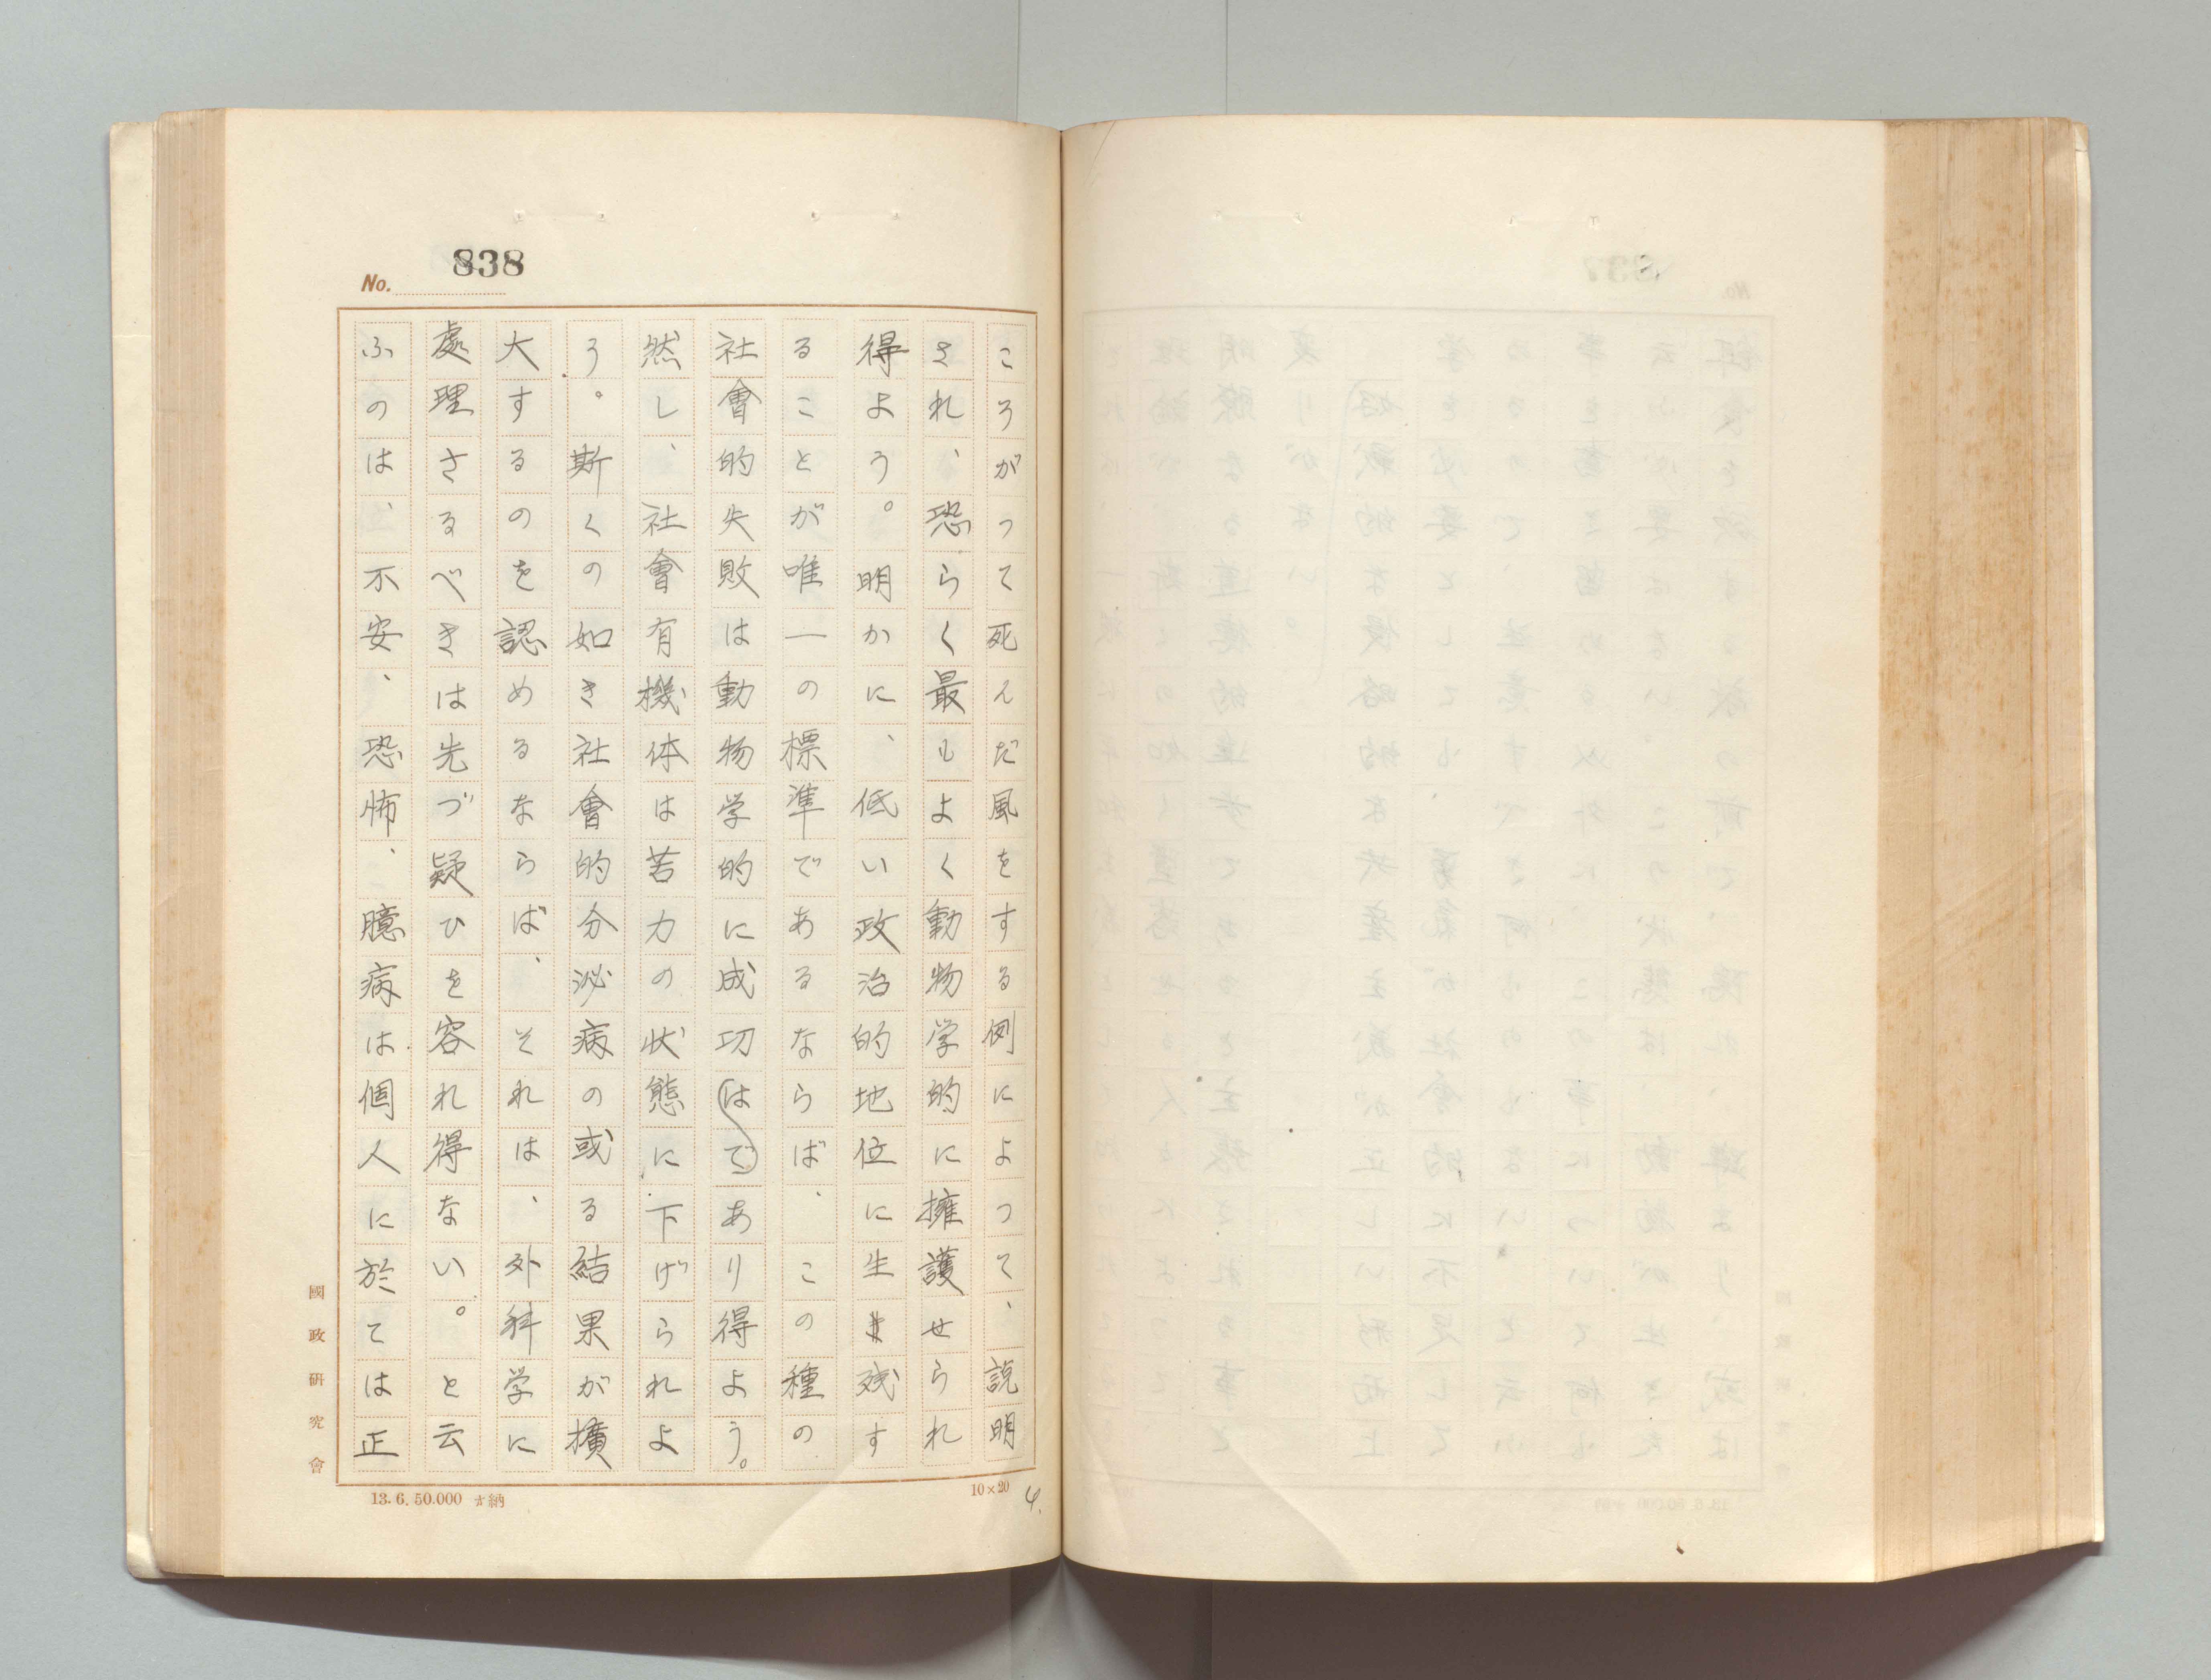 838
No.
ころがつて死んだ風をする例によつて、説明
され、恐らく最もよく動物学的に擁護せられ
得よう。明かに、低い政治的地位に生き残す
ることが唯一の標準であるならば、この種の
社會的失敗は動物学的に成功はであり得よう。
然し、社會有機体は苦力の状態に下げられよ
う。斯くの如き社會的分泌病の或る結果が擴
大するのを認めるならば、それは、外科学に
處理さるべきは先づ疑ひを容れ得ない。と云
ふのは、不安、恐怖、臆病は個人に於ては正
國政研究會
13.6.50.000 納
10×20
4.